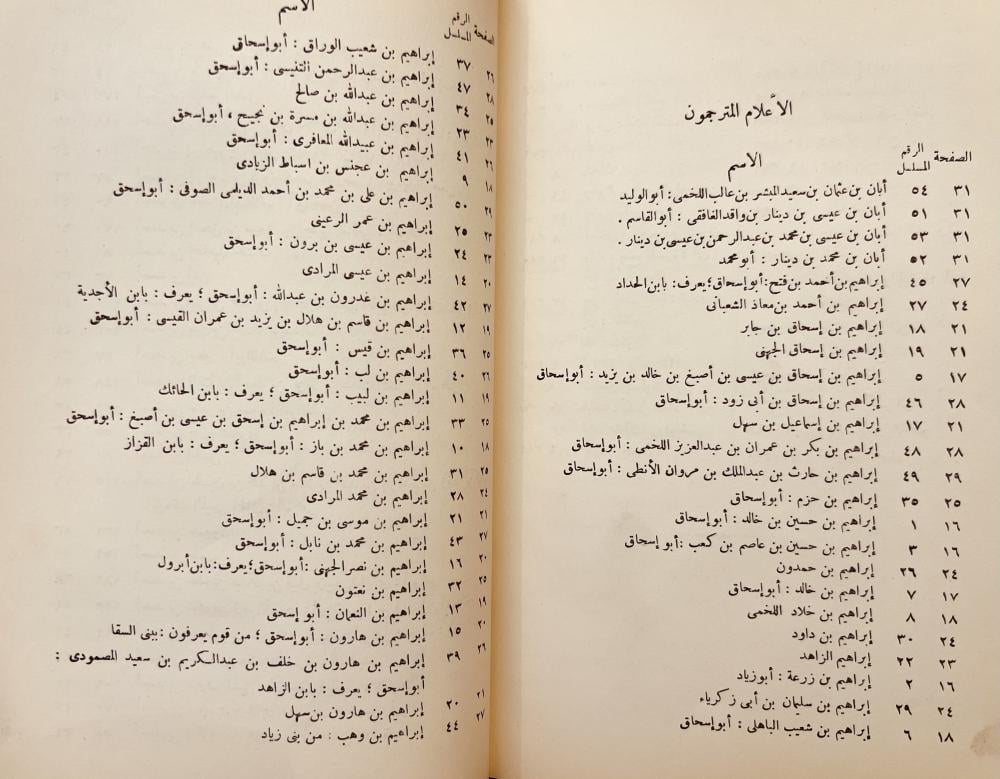 الأعلام المترجمون
الصفحة الرقم المسلسل الاسم
٣١ ٥٤ أبان بن عثمان بن سعيد المبشر بن غالب اللخمى: أبو الوليد
٣١ ٥١ أبان بن عيسى بن دينار بن واقد الغافقى : أبو القاسم .
٣١ ٥٣ أبان بن عيسى بن محمد بن عبدالرحمن بن عيسى بن دينار .
٣١ ٥٢ أبان بن محمد بن دينار : أبو محمد
٢٧ ٤٥ إبراهيم بن أحمد بن فتح: أبو إسحاق؛ يعرف: بابن الحداد
٢٤ ٢٧ إبراهيم بن أحمد بن معاذ الشعبانى
٢١ ١٨ إبراهيم بن إسحاق بن جابر
٢١ ١٩ إبراهيم بن إسحاق الجهنى
١٧ ٥ إبراهيم بن إسحاق بن عيسى بن أصبغ بن خالد بن يزيد : أبو إسحاق
٢٨ ٤٦ إبراهيم بن إسحاق بن أبى زود : أبو إسحاق
٢١ ١٧ إبراهيم بن إسماعيل بن سهل
٢٨ ٤٨ إبراهيم بن بكر بن عمران بن عبدالعزيز اللخمى : أبو إسحاق
٢٩ ٤٩ إبراهيم بن حارث بن عبدالملك بن مروان الأنطى : أبو إسحاق
٢٥ ٣٥ إبراهيم بن حزم : أبو إسحاق
١٦ ١ إبراهيم بن حسين بن خالد : أبو إسحاق
١٦ ٣ إبراهيم بن حسين بن عاصم بن كعب : أبو إسحاق
٢٤ ٢٦ إبراهيم بن حمدون
١٧ ٧ إبراهيم بن خالد : أبو إسحاق
١٨ ٨ إبراهيم بن خلاد اللخمى
٢٤ ٣٠ إبراهيم بن داود
٢٣ ٢٢ إبراهيم الزاهد
١٦ ٢ إبراهيم بن زرعة : أبو زياد
٢٤ ٢٩ إبراهيم بن سليمان بن أبى زكرياء
١٨ ٦ إبراهيم بن شعيب الباهلى : أبو إسحاق
الصفحة الرقم المسلسل الاسم
٢٦ ٣٧ إبراهيم بن شعيب الوراق : أبو إسحاق
٢٨ ٤٧ إبراهيم بن عبدالرحمن التنيسى : أبو إسحق
٢٥ ٣٤ إبراهيم بن عبدالله بن صالح
٢٣ ٢٣ إبراهيم بن عبدالله بن مسرة بن نجيح ، أبو إسحق
٢٦ ٤١ إبراهيم بن عبيدالله المعافرى : أبو إسحق
١٨ ٩ إبراهيم بن عجنس بن اسباط الزيادى
٢٩ ٥٠ إبراهيم بن على بن محمد بن أحمد الديلمى الصوفى : أبو إسحق
٢٣ ٢٥ إبراهيم بن عمر الرعينى
٢٣ ٢٤ إبراهيم بن عيسى بن برون : أبو إسحق
٢٠ ١٤ إبراهيم بن عيسى المرادى
٢٧ ٤٢ إبراهيم بن غدرون بن عبدالله : أبو إسحق ؛ يعرف : بابن الأجدبة
١٩ ١٢ إبراهيم بن قاسم بن هلال بن يزيد بن عمران القيسى : أبو إسحق
٢٥ ٣٦ إبراهيم بن قيس : أبو إسحق
٢٦ ٤٠ إبراهيم بن لب : أبو إسحق
١٩ ١١ إبراهيم بن لبيب : أبو إسحق ؛ يعرف : بابن الحائك
٢٥ ٣٣ إبراهيم بن محمد بن إبراهيم بن إسحق بن عيسى بن أصبغ : أبو إسحق
١٨ ١٠ إبراهيم بن محمد بن باز : أبو إسحق ؛ يعرف : بابن القزاز
٢٥ ٣١ إبراهيم بن محمد بن قاسم بن هلال
٢٤ ٢٨ إبراهيم بن محمد المرادى
٢١ ٢١ إبراهيم بن موسى بن جميل : أبو إسحق
٢٧ ٤٣ إبراهيم بن محمد بن نابل : أبو إسحق
٢٠ ١٦ إبراهيم بن نصر الجهنى : أبو إسحق؛ يعرف: بابن أبرول
٢٥ ٣٢ إبراهيم بن نعتون
١٩ ١٣ إبراهيم بن النعمان : أبو إسحق
٢٠ ١٥ إبراهيم بن هارون : أبو إسحق ؛ من قوم يعرفون : ببنى السقا
٢٦ ٣٩ إبراهيم بن هارون بن خلف بن عبدالسكريم بن سعيد المصمودى :
أبو إسحق ؛ يعرف : بابن الزاهد
٢١ ٢٠ إبراهيم بن هارون بن سهل
٢٧ ٤٤ إبراهيم بن وهب : من بنى زياد